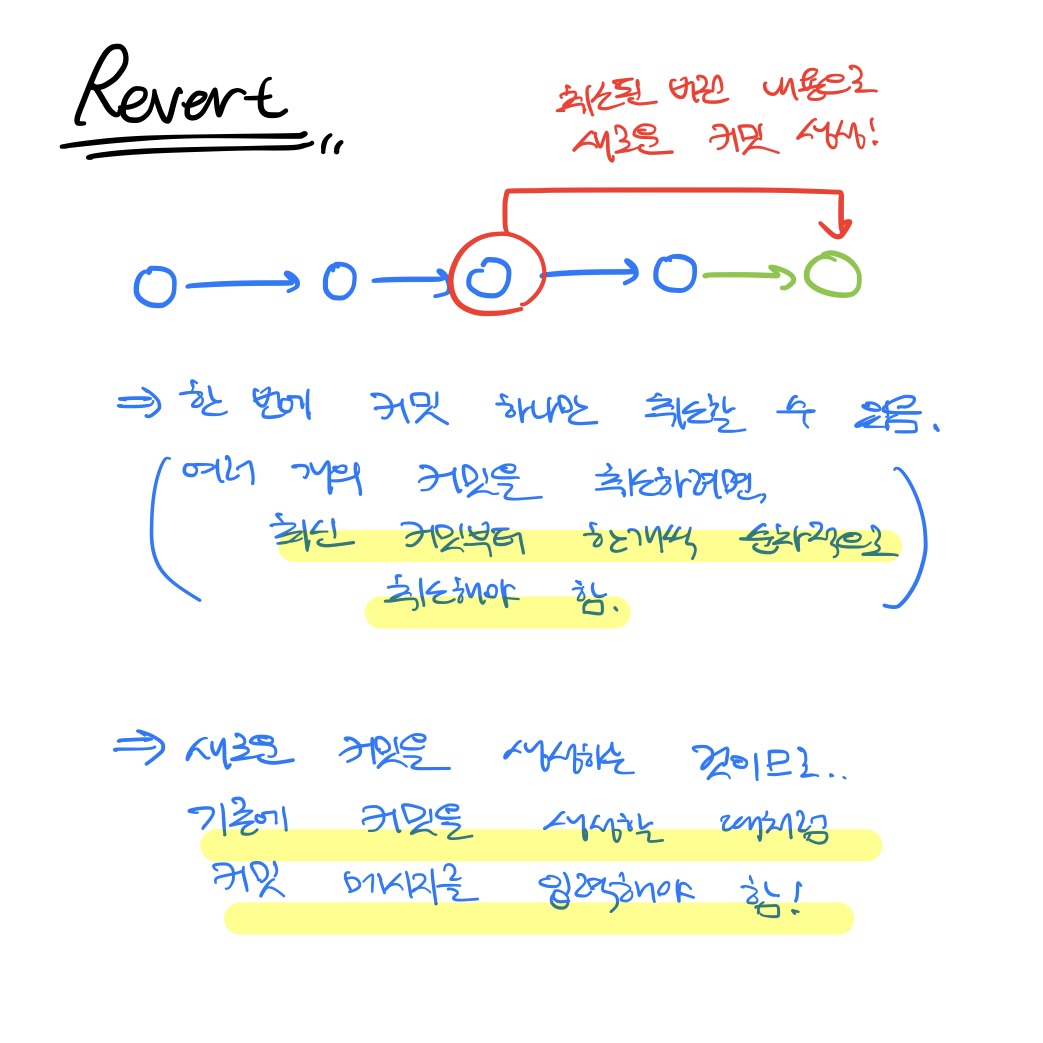 Revert
취소된 버전 내용으로
새로운 커밋 생성!
⇒ 한 번에 커밋 하나만 취소할 수 있음.
(여러 개의 커밋을 취소하려면,
최신 커밋부터 한개씩 순차적으로
취소해야 함.)
⇒ 새로운 커밋을 생성하는 것이므로..
기존에 커밋을 생성할 때처럼
커밋 메시지를 입력해야 함!